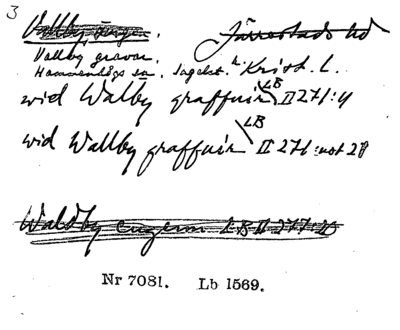 3
Vallby ängar. Järrestads hd
Vallby gravar.
Hammenhögs sn. Ingelst. h. Krist. L.
wid Walby graffuir LB II 271:4
wid Wallby graffuir LB II 271:not 28
Waldby engeron LB II 277:20
Nr 7081. Lb 1569.